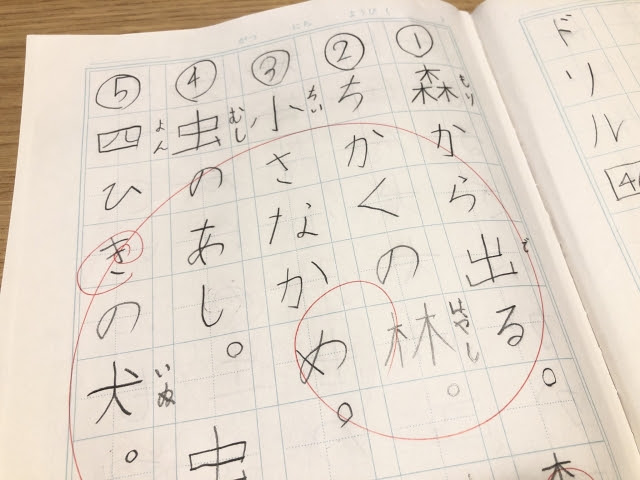 ①森から出る。
もり
で
②ちかくの林。
はやし
③小さなかめ。
ちい
④虫のあし。
むし
虫
⑤四ひきの犬。
よん
いぬ
ドリル